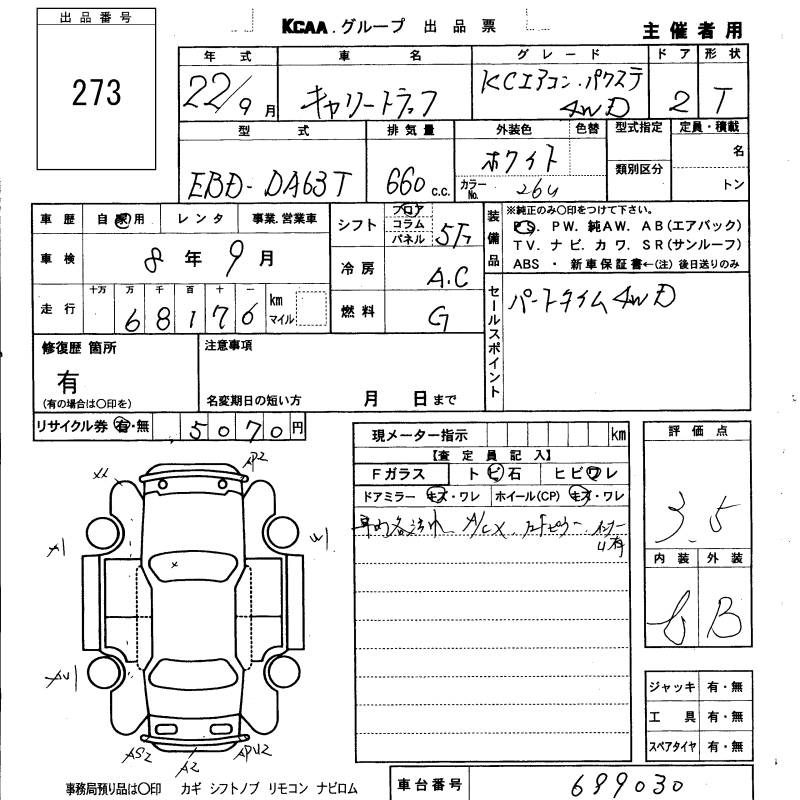 出品番号
273
KCAA.グループ 出品票
主催者用
年式 車名 グレード ドア 形状
22/9月 キャリートラック KCエアコン.パワステ 4WD 2 T
型式 排気量 外装色 色替 型式指定 定員・積載
EBD-DA63T 660c.c. ホワイト 類別区分 名
カラーNo. 26U トン
車歴 自家用 レンタ 事業.営業車
シフト フロア コラム パネル 5F
装備品 ※純正のみ〇印をつけて下さい。
PS. PW. 純AW. AB(エアバック)
TV. ナビ. カワ. SR(サンルーフ)
ABS ・ 新車保証書←(注)後日送りのみ
車検 8年9月
冷房 A.C
走行 十万 万 千 百 十 一
68176 km マイル
燃料 G
セールスポイント
パートタイム4WD
修復歴 箇所
有
(有の場合は〇印を)
注意事項
名変期日の短い方 月 日まで
リサイクル券 有・無 5070円
現メーター指示 km
【査定員記入】
Fガラス トビ石 ヒビワレ
ドアミラー キズ・ワレ ホイール(CP) キズ・ワレ
A/CX
評価点
3.5
内装 外装
B
A2
A1
W1
AS2
A2
ジャッキ 有・無
工具 有・無
スペアタイヤ 有・無
事務局預り品は〇印 カギ シフトノブ リモコン ナビロム
車台番号 699030